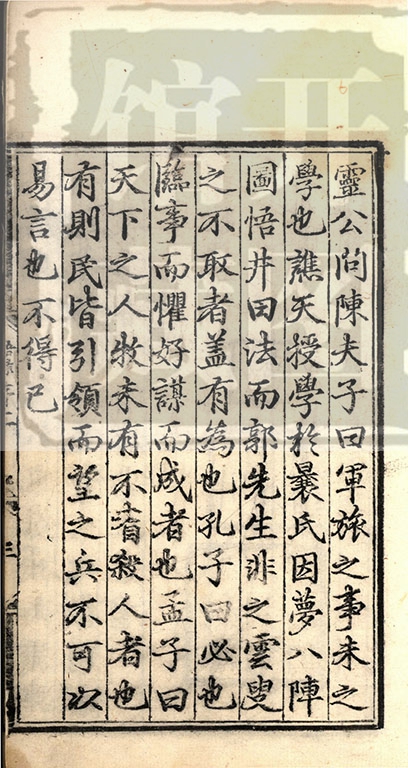 靈公問陳夫子曰軍旅之事未之
學也譙天授學於㬥氏因夢八陣
圖悟井田法而郭先生非之雲叟
之不取者盖有為也孔子曰必也
臨事而懼好謀而成者也孟子曰
天下之人牧未有不嗜殺人者也
有則民皆引領而望之兵不可以
易言也不得已